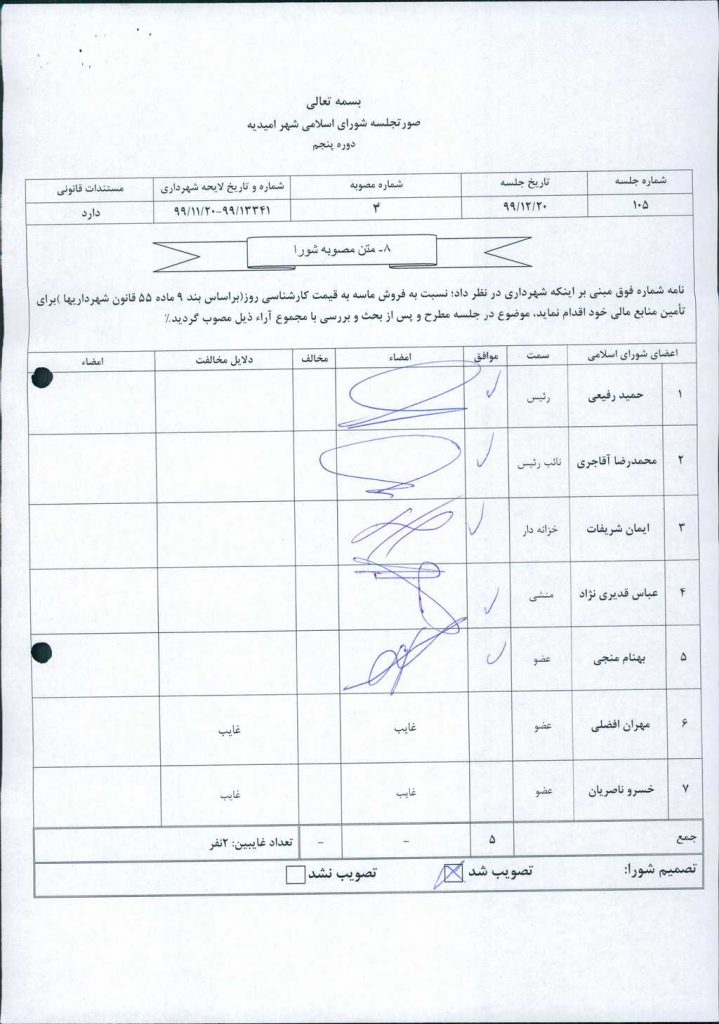 بسمه تعالی
صورتجلسه شورای اسلامی شهر امیدیه
دوره پنجم
شماره جلسه تاریخ جلسه شماره مصوبه شماره و تاریخ لایحه شهرداری مستندات قانونی
۱۰۵ ۹۹/۱۲/۲۰ ۴ ۹۹/۱۱/۲۰-۹۹/۱۳۳۴۱ دارد
۸- متن مصوبه شورا
نامه شماره فوق مبنی بر اینکه شهرداری در نظر داد؛ نسبت به فروش ماسه به قیمت کارشناسی روز(براساس بند ۹ ماده ۵۵ قانون شهرداریها )برای
تأمین منابع مالی خود اقدام نماید، موضوع در جلسه مطرح و پس از بحث و بررسی با مجموع آراء ذیل مصوب گردید.٪
اعضای شورای اسلامی سمت موافق امضاء مخالف دلایل مخالفت امضاء
۱ حمید رفیعی رئیس
۲ محمدرضا آقاجری نائب رئیس
۳ ایمان شریفات خزانه دار
۴ عباس قدیری نژاد منشی
۵ بهنام منجی عضو
۶ مهران افضلی عضو غایب غایب
۷ خسرو ناصریان عضو غایب غایب
جمع ۵ - - تعداد غایبین: ۲نفر
تصمیم شورا: تصویب شد تصویب نشد